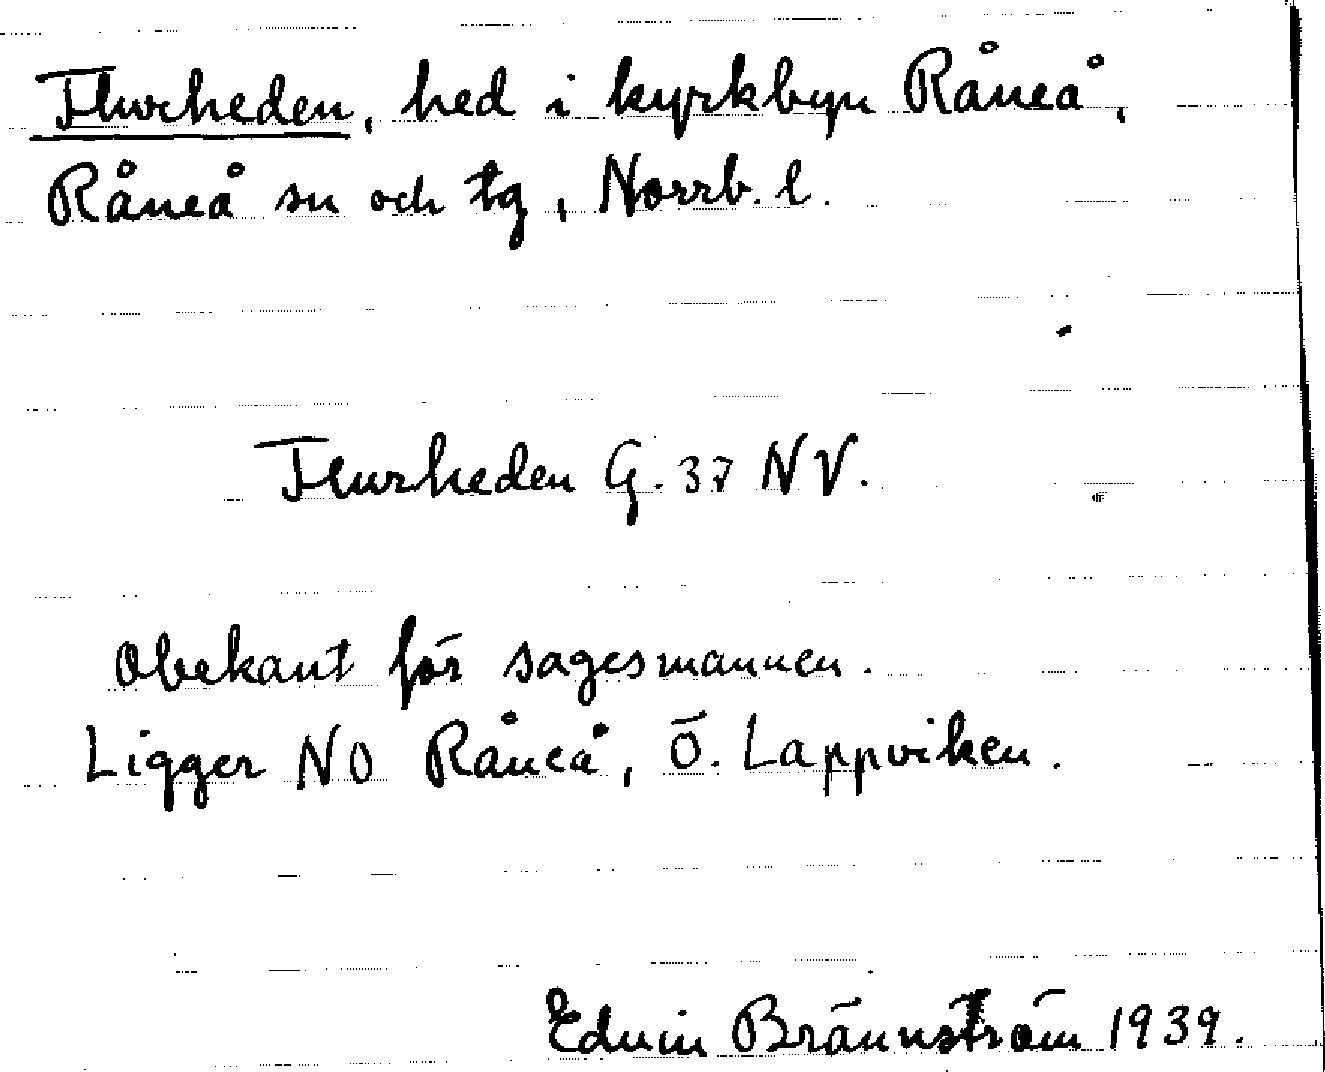 Flurheden, hed i kyrkbyn Råneå,
Råneå sn och tg, Norrb. l.
Flurheden G. 37 NV.
Obekant för sagesmannen.
Ligger NO Råneå, Ö. Lappviken.
Edwin Brännström 1939.